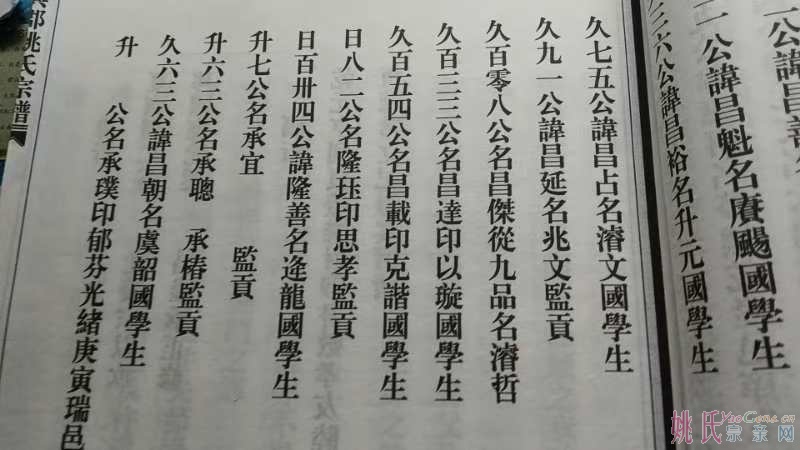 公諱昌善
二一公諱昌魁名賡颺國學生
三六公諱昌裕名升元國學生
久七五公諱昌占名濬文國學生
久九一公諱昌延名兆文監貢
久百零八公名昌傑從九品名濬哲
久百三三公名昌達印以璇國學生
久百五四公名昌載印克諧國學生
日八二公名隆珏印思孝監貢
日百卅四公諱隆善名逢龍國學生
升七公名承宜 監貢
升六三公名承聰 承椿監貢
久六三公諱昌朝名虞韶國學生
升 公名承璞印郁芬光緒庚寅瑞邑
郡姚氏宗譜
姚氏宗亲网
YaoGens.cn